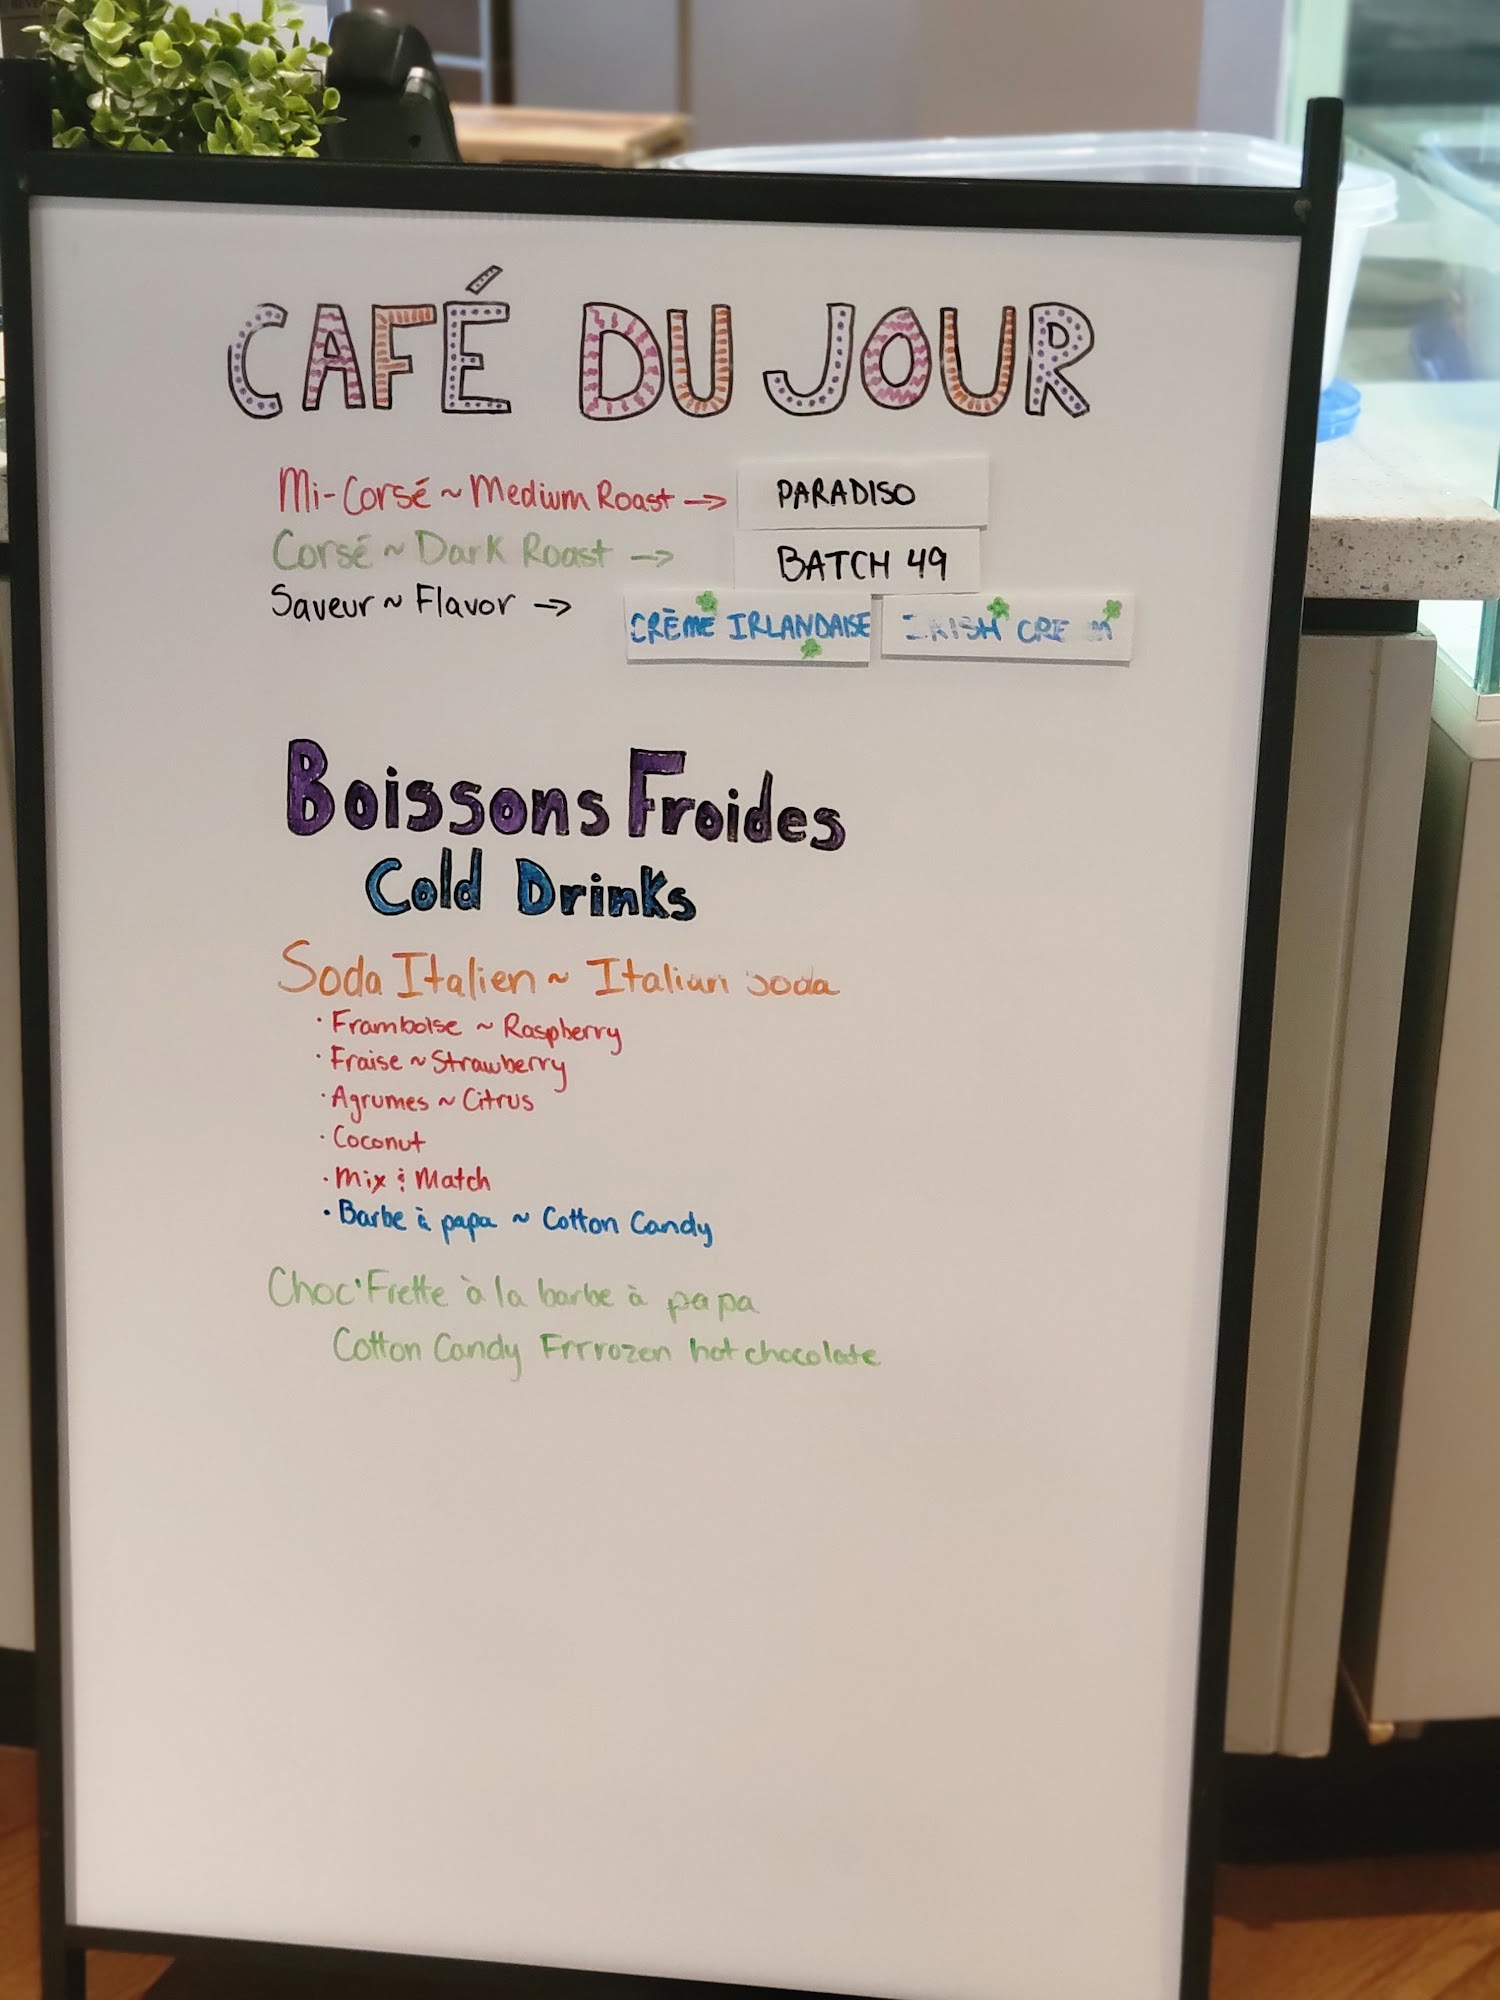 CAFÉ DU JOUR
Mi-Corsé ~ Medium Roast → PARADISO
Corsé ~ Dark Roast → BATCH 49
Saveur ~ Flavor → CRÈME IRLANDAISE IRISH CREAM
Boissons Froides
Cold Drinks
Soda Italien ~ Italian soda
· Framboise ~ Raspberry
· Fraise ~ Strawberry
· Agrumes ~ Citrus
· Coconut
· Mix & Match
· Barbe à papa ~ Cotton Candy
Choc'Frette à la barbe à papa
Cotton Candy Frrrozen hot chocolate